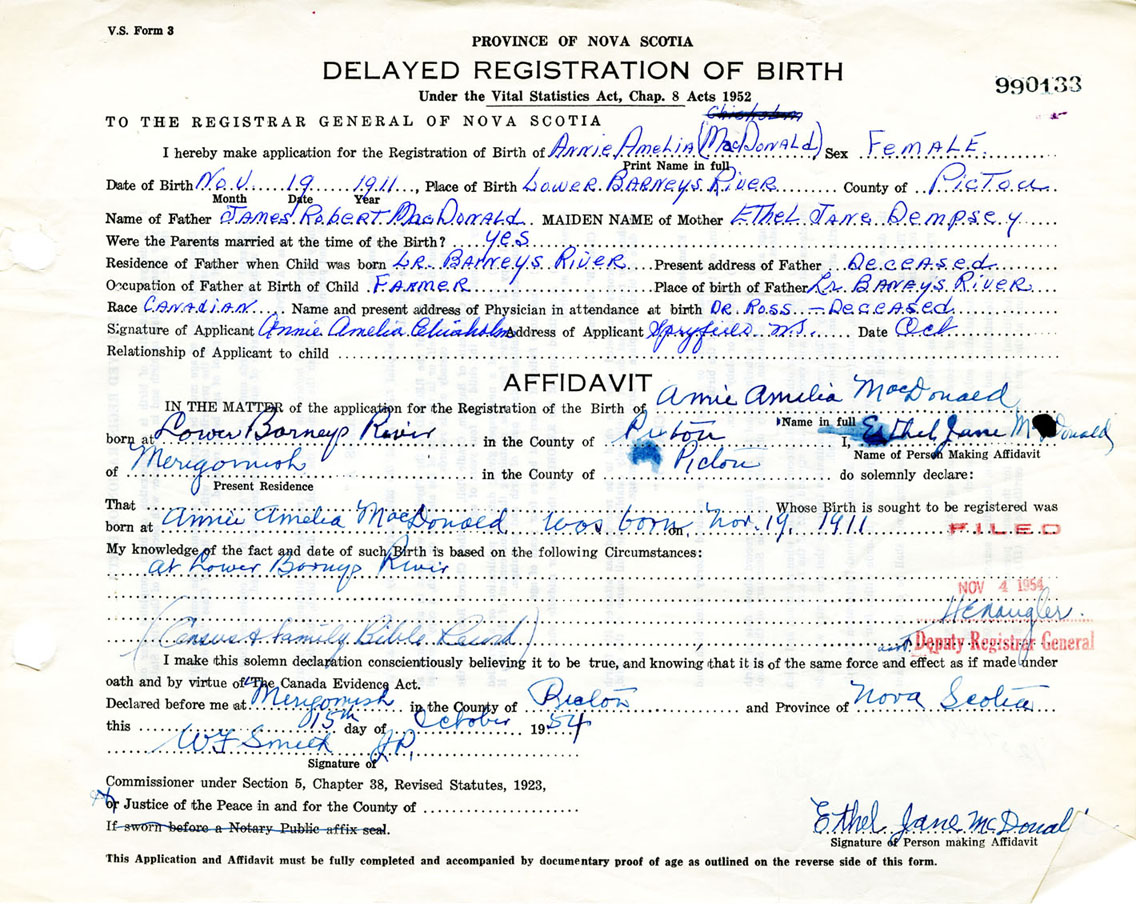 V.S. Form 3
PROVINCE OF NOVA SCOTIA
DELAYED REGISTRATION OF BIRTH
990133
Under the Vital Statistics Act, Chap. 8 Acts 1952
Chisholm
TO THE REGISTRAR GENERAL OF NOVA SCOTIA
I hereby make application for the Registration of Birth of Annie Amelia (MacDonald) Sex Female
Print Name in full
Date of Birth Nov. 19 1911, Place of Birth Lower Barneys River County of Pictou
Month Date Year
Name of Father James Robert MacDonald MAIDEN NAME of Mother Ethel Jane Dempsey
Were the Parents married at the time of the Birth? yes
Residence of Father when Child was born Lr. Barneys River Present address of Father Deceased
Occupation of Father at Birth of Child Farmer Place of birth of Father Lr. Barneys River
Race Canadian Name and present address of Physician in attendance at birth Dr. Ross - Deceased
Signature of Applicant Annie Amelia Chisholm Address of Applicant Spryfield N.S. Date Oct
Relationship of Applicant to child
AFFIDAVIT
IN THE MATTER of the application for the Registration of the Birth of Annie Amelia MacDonald
Name in full
born at Lower Barneys River in the County of Pictou I, Ethel Jane McDonald
Name of Person Making Affidavit
of Merigomish in the County of Pictou do solemnly declare:
Present Residence
That Whose Birth is sought to be registered was
born at Annie Amelia MacDonald was born on Nov. 19, 1911
FILED
My knowledge of the fact and date of such Birth is based on the following Circumstances:
at Lower Barneys River
NOV 4 1954
(Census & Family Bible Record)
asst. Deputy Registrar General
I make this solemn declaration conscientiously believing it to be true, and knowing that it is of the same force and effect as if made under
oath and by virtue of The Canada Evidence Act.
Declared before me at Merigomish in the County of Pictou and Province of Nova Scotia
this 15th day of October 1954
W F Smith J.P.
Signature of
Commissioner under Section 5, Chapter 38, Revised Statutes, 1923,
or Justice of the Peace in and for the County of
If sworn before a Notary Public affix seal.
Ethel Jane McDonald
Signature of Person making Affidavit
This Application and Affidavit must be fully completed and accompanied by documentary proof of age as outlined on the reverse side of this form.